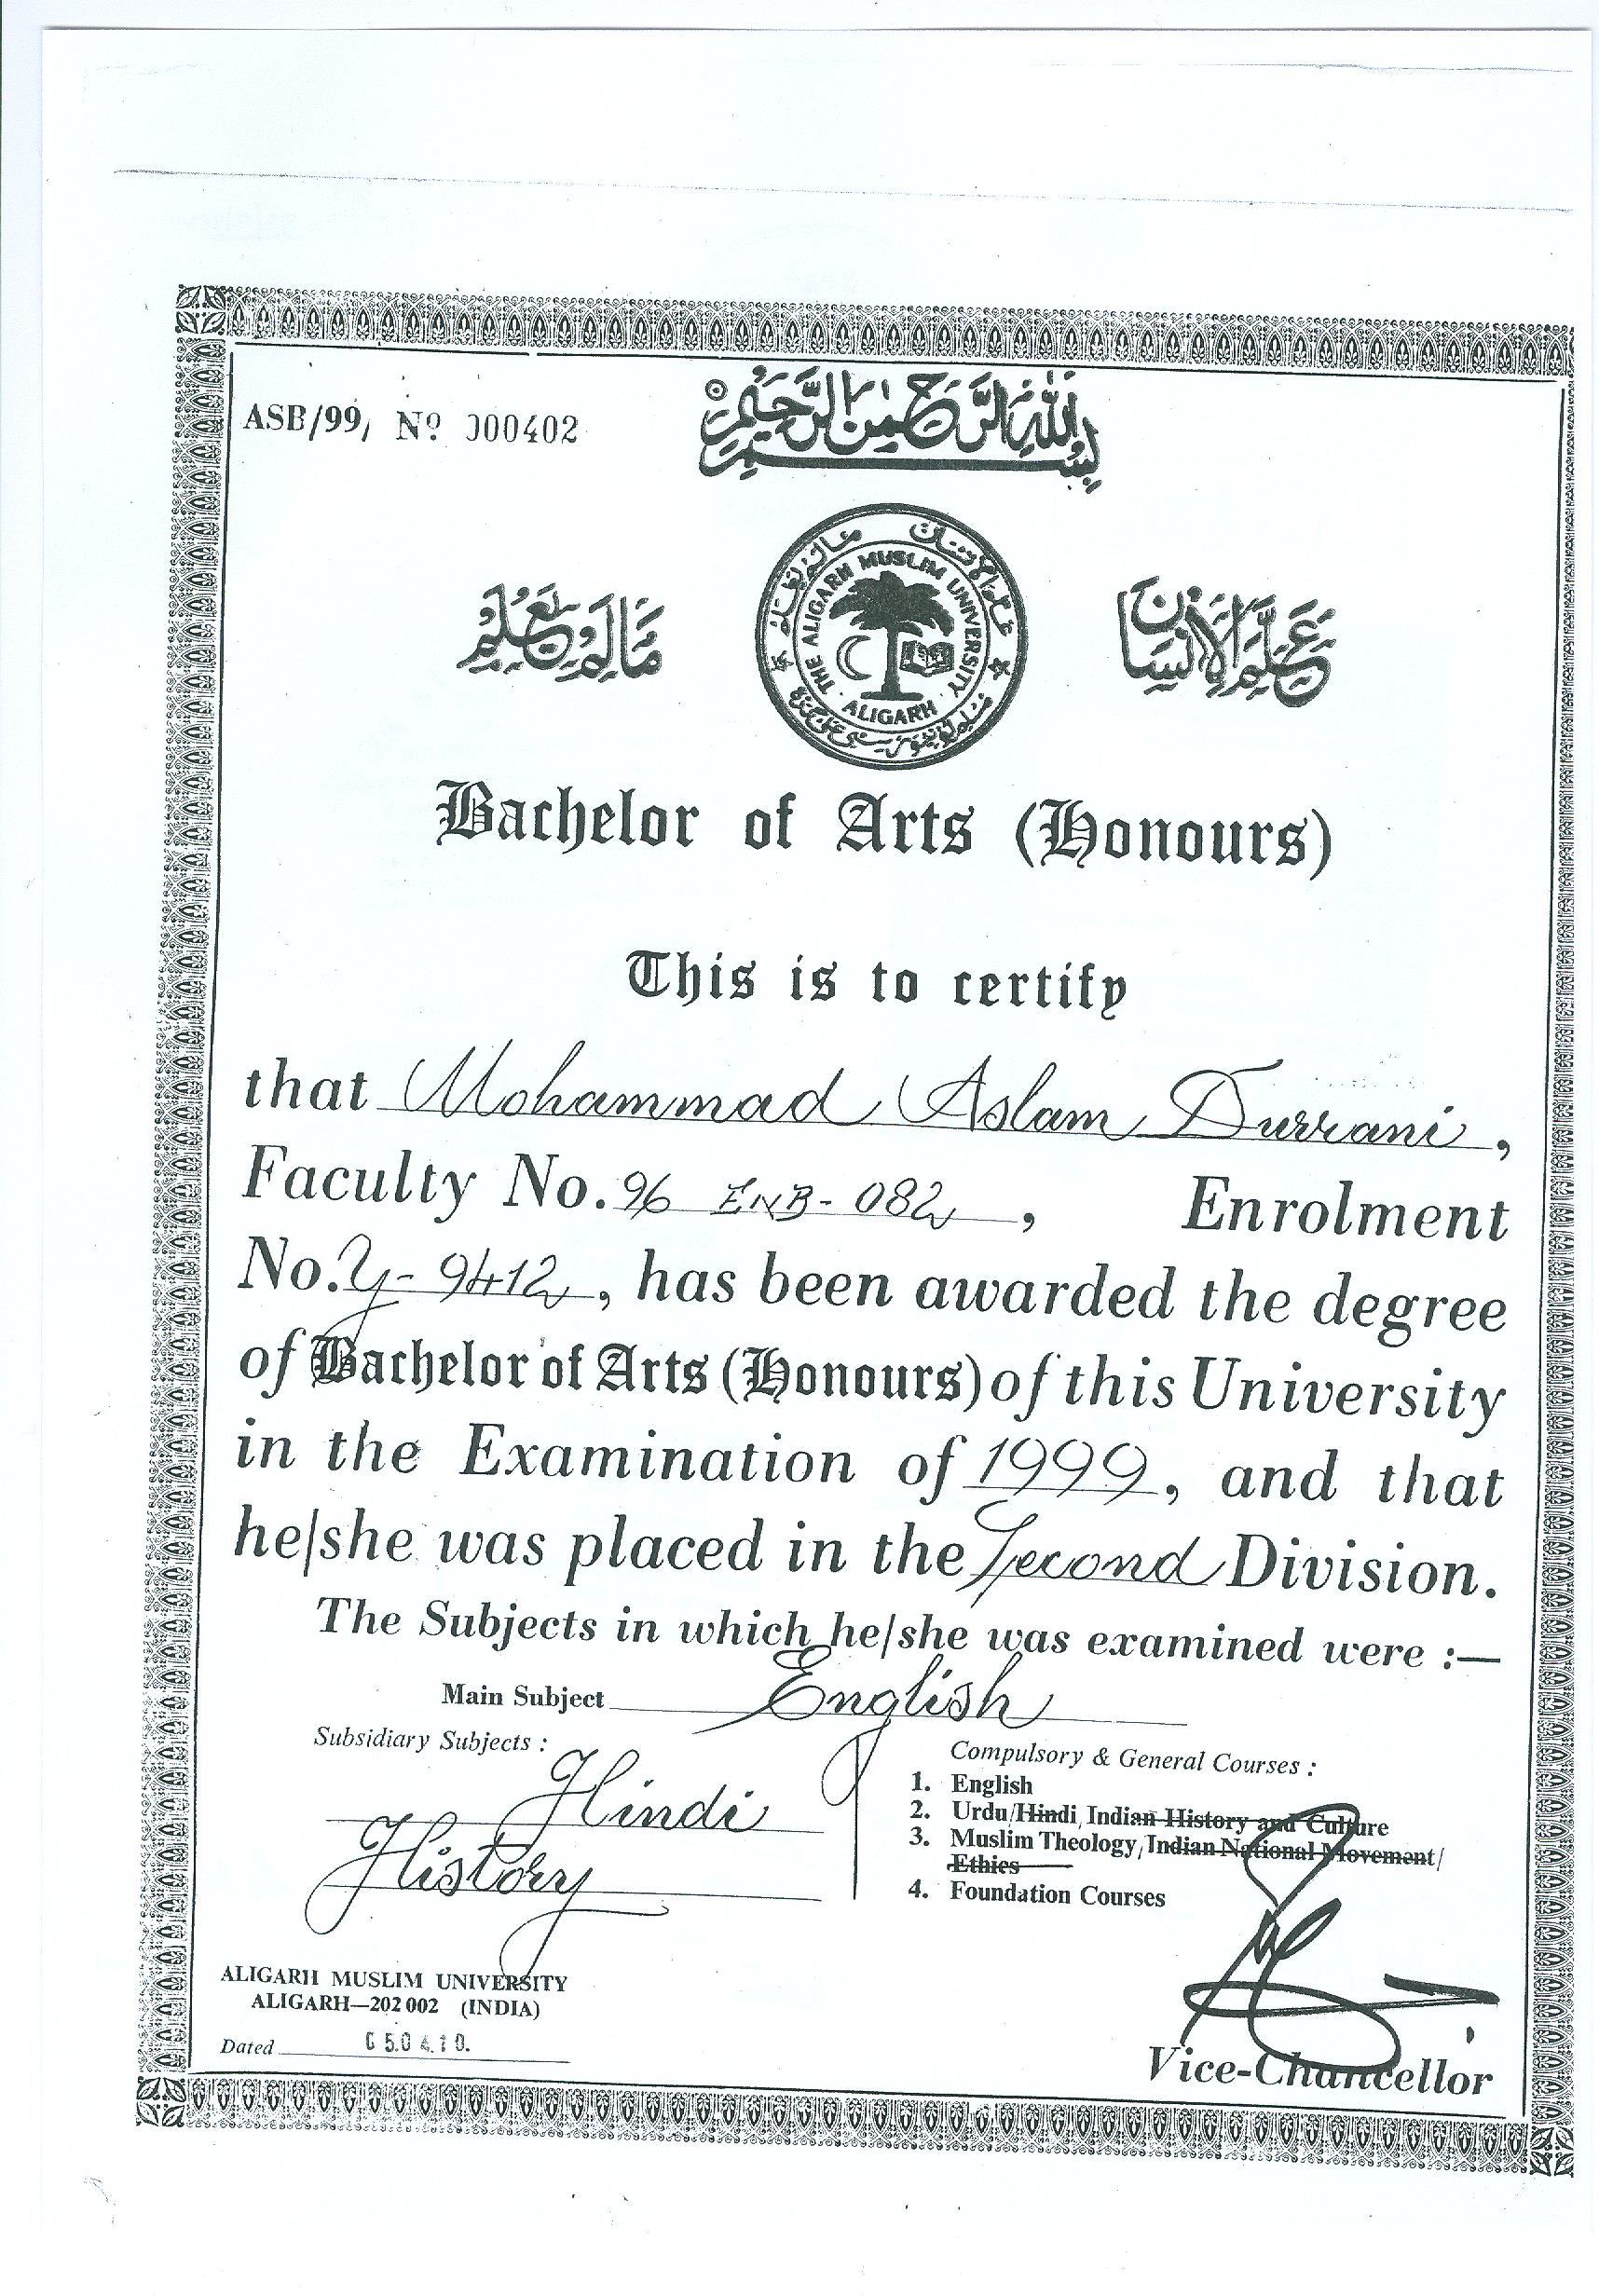 ASB/99, Nº 000402
بسم الله الرحمن الرحيم
علم الانسان مالم يعلم
THE ALIGARH MUSLIM UNIVERSITY
ALIGARH
علم الانسان مالم يعلم
Bachelor of Arts (Honours)
This is to certify
that Mohammad Aslam Durrani,
Faculty No. 96 ENB-082, Enrolment
No. Y-9412, has been awarded the degree
of Bachelor of Arts (Honours) of this University
in the Examination of 1999, and that
he/she was placed in the Second Division.
The Subjects in which he/she was examined were :—
Main Subject English
Subsidiary Subjects :
Hindi
History
Compulsory & General Courses :
1. English
2. Urdu/Hindi, Indian History and Culture
3. Muslim Theology, Indian National Movement/
Ethics
4. Foundation Courses
ALIGARH MUSLIM UNIVERSITY
ALIGARH—202 002 (INDIA)
Dated
Vice-Chancellor